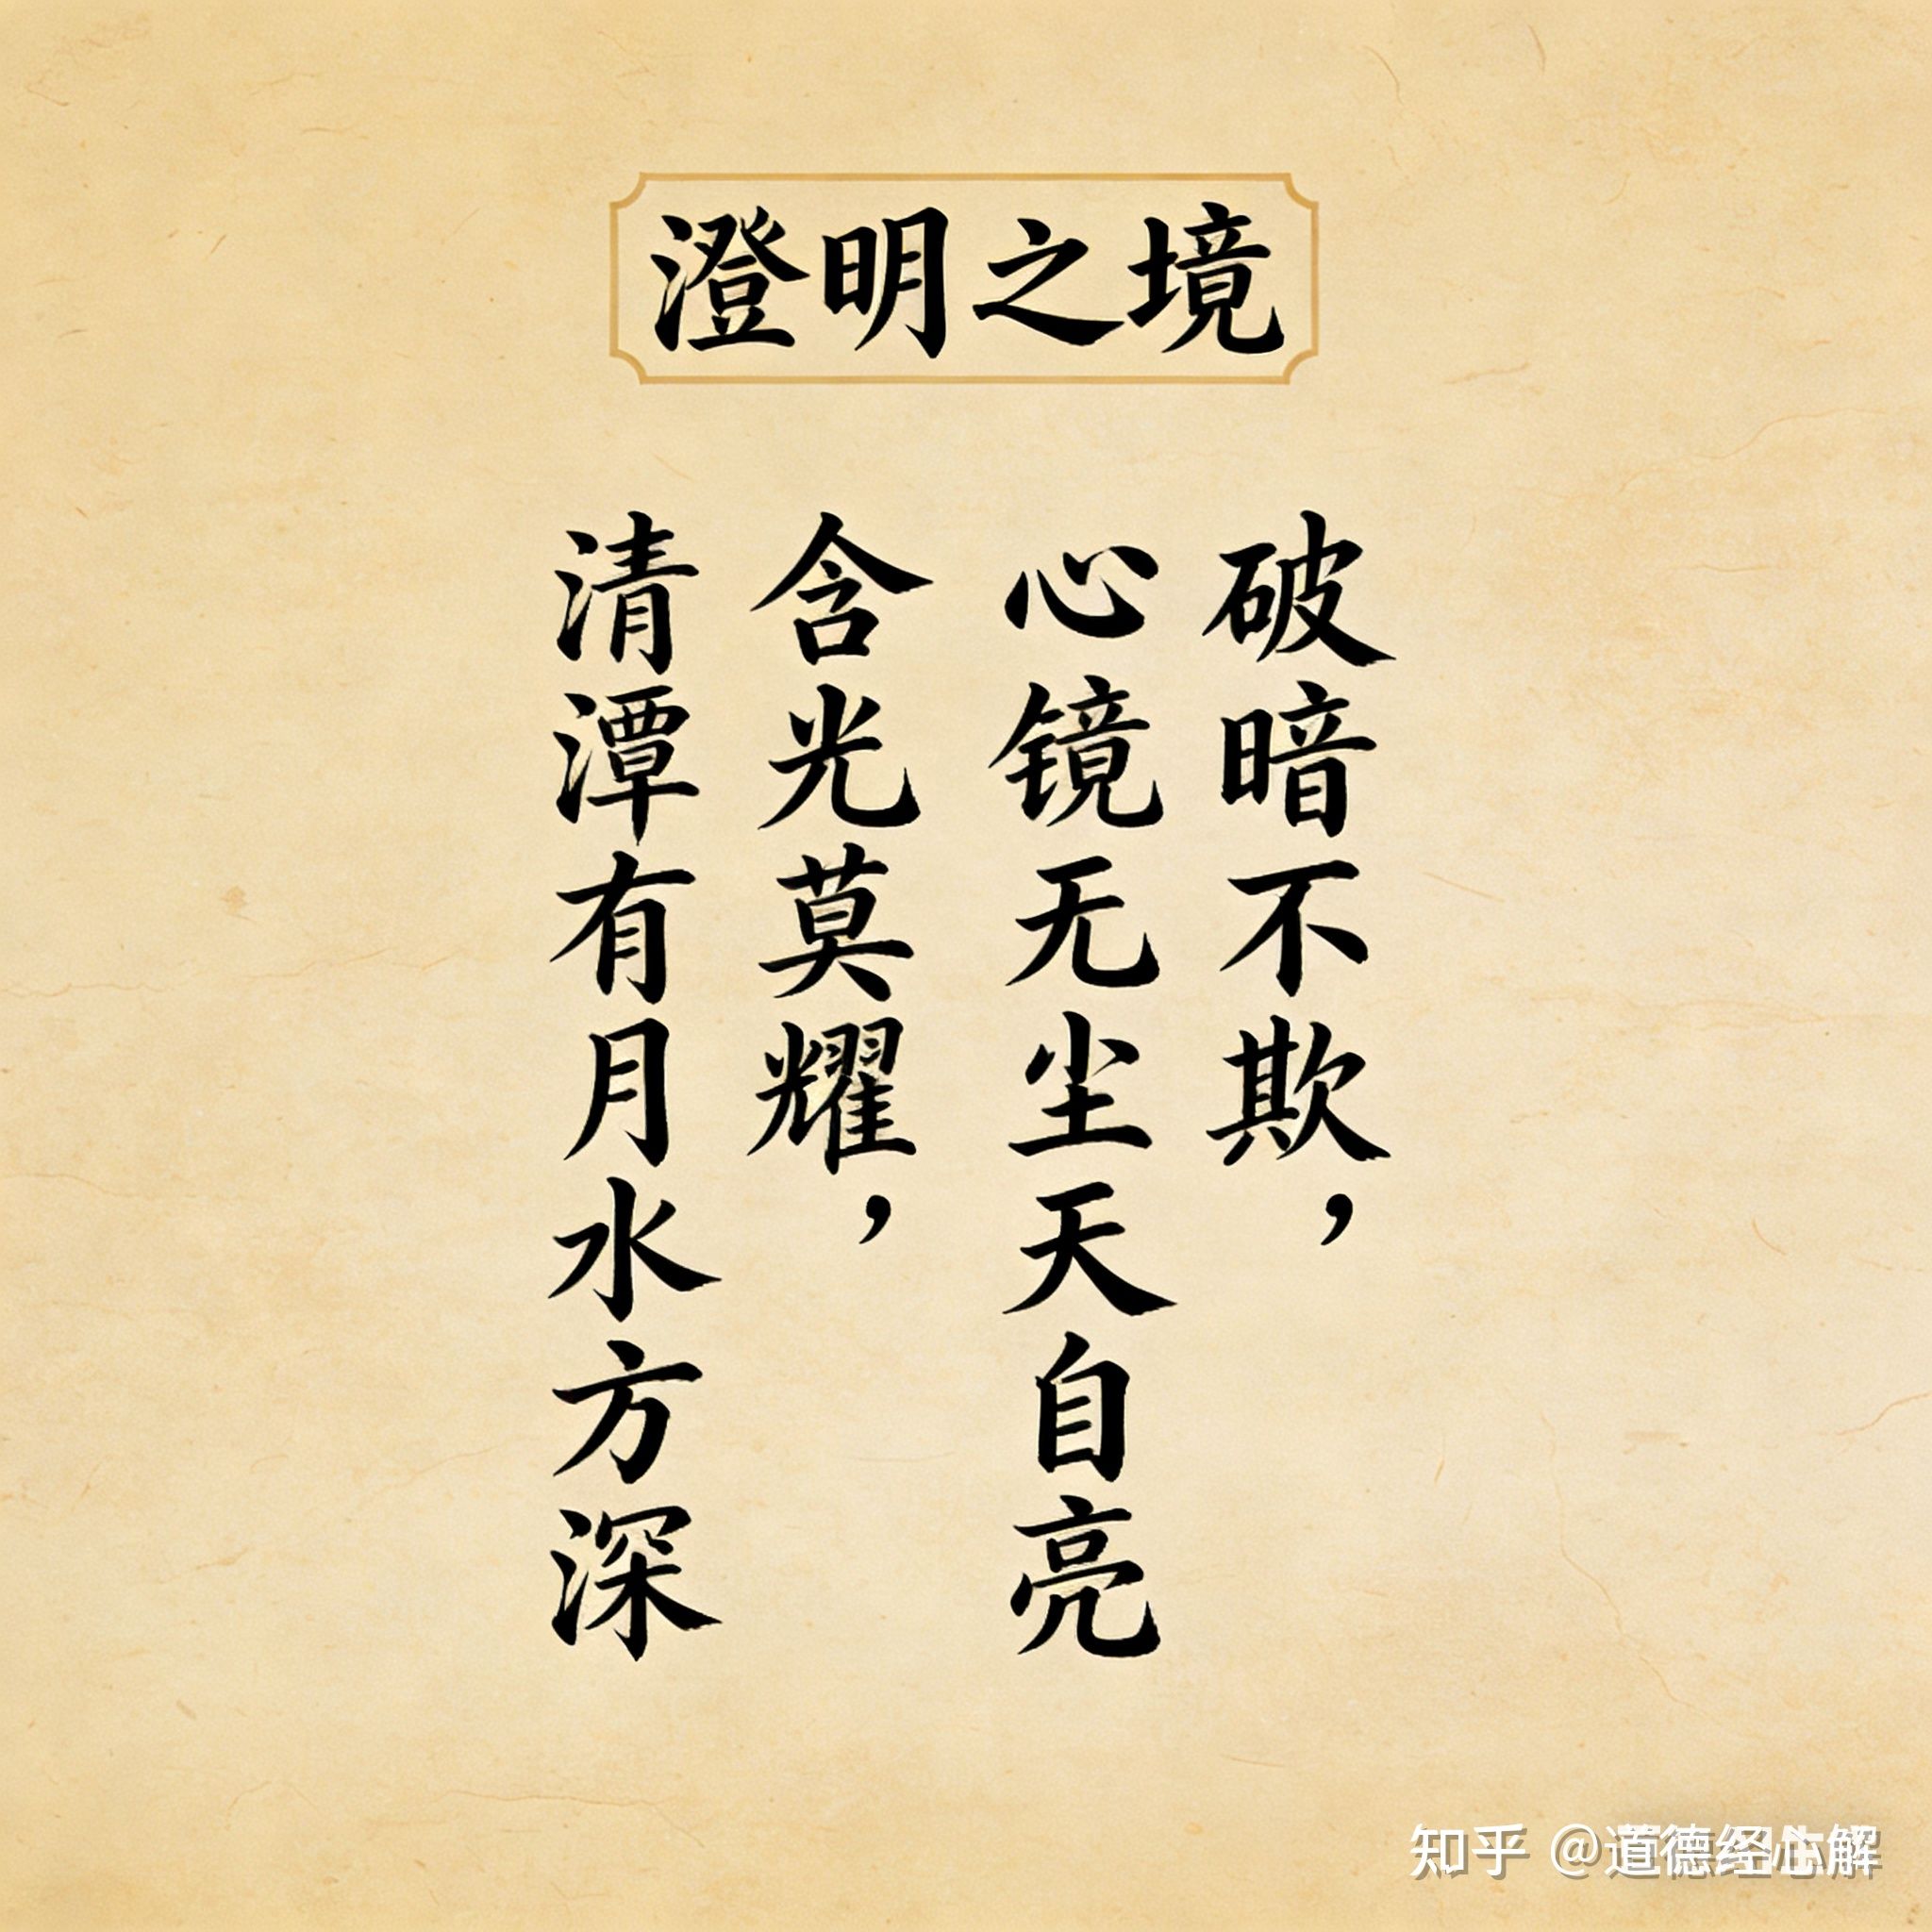 澄明之境
破暗不欺，
心镜无尘天自亮
含光莫耀，
清潭有月水方深
知乎 @道德经心解